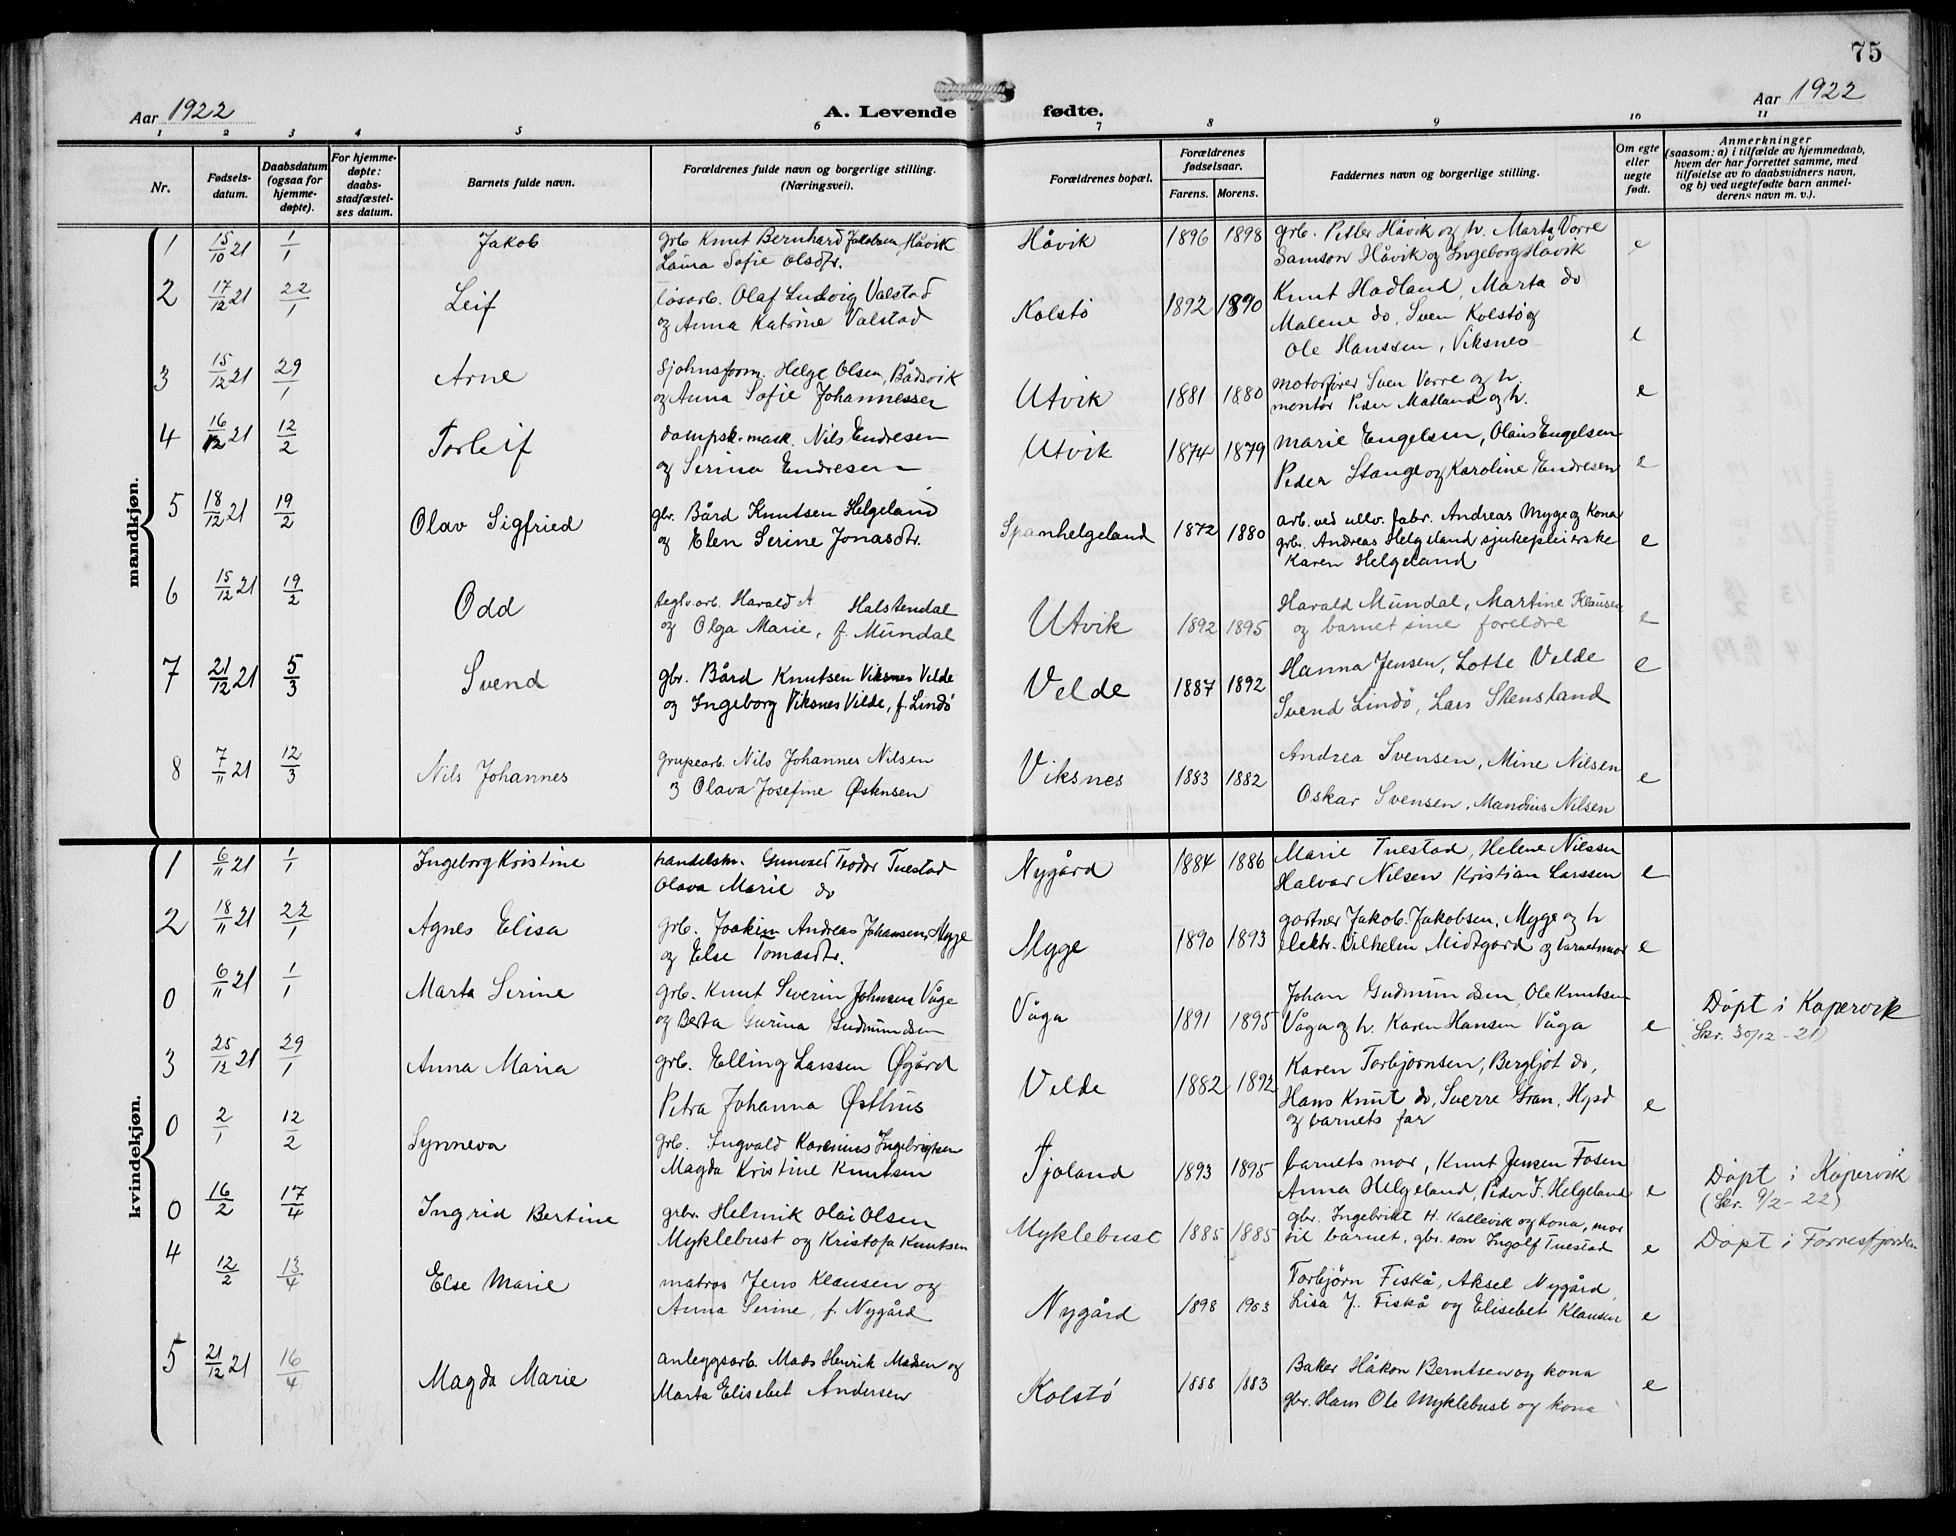 75
Aar 1922
A. Levende fødte.
Aar 1922
1 2 3 4 5 6 7 8 9 10 11
Nr.
Fødsels-
datum.
Daabsdatum
(ogsaa for
hjemme-
døpte).
For hjemme-
døpte:
daabs-
stadfæstel-
ses datum.
Barnets fulde navn.
Forældrenes fulde navn og borgerlige stilling.
(Næringsvei).
Forældrenes bopæl.
Forældrenes
fødselsaar.
Farens. Morens.
Faddernes navn og borgerlige stilling.
Om egte
eller
uegte
født.
Anmerkninger
(saasom: a) i tilfælde av hjemmedaab,
hvem der har forrettet samme, med
tilføielse av to daabsvidners navn,
og b) ved uegtefødte barn anmel-
derens navn m. v.).
mandkjøn.
1 15/10 21 1/1 Jakob grb. Knut Bernhard Jakobsen, Håvik Håvik 1896 1898 grb. Petter Håvik og h. Marta Vorre e
Laura Sofie Olsdtr. Samson Håvik og Ingeborg Håvik
2 17/12 21 22/1 Leif løsarb. Olaf Ludvig Valstad Kolstø 1892 1890 Knut Hadland, Marta do
og Anna Katrine Valstad Malene do, Sven Kolstø og
Ole Hanssen, Viksnes e
3 15/12 21 29/1 Arne Sjohnsform. Helge Olsen, Bådsvik Utvik 1881 1880 motorfører Sven Vorre og h. e
og Anna Sofie Johannessen montør Peder Matland og h.
4 16/12 21 12/2 Torleif dampsk. mask. Nils Endresen Utvik 1874 1879 Marie Engelsen, Olaus Engelsen e
og Serina Endresen Peder Stange og Karoline Endresen
5 18/12 21 19/2 Olav Sigfried gbr. Bård Knutsen Helgeland Spanhelgeland 1872 1880 arb. ved ullv. fabr. Andreas Myge og Kona
og Elen Serine Jonasdtr. grb. Andreas Helgeland sjukepleierske e
Karen Helgeland
6 15/12 21 19/2 Odd teglv. arb. Harald A Halstendal Utvik 1892 1895 Harald Mundal, Martine Klausen e
og Olga Marie, f. Mundal og barnet sine foreldre
7 21/12 21 5/3 Svend gbr. Bård Knutsen Viksnes Velde Velde 1887 1892 Hanna Jensen, Lotte Velde e
og Ingeborg Viksnes Velde, f. Lindø Svend Lindø, Lars Stensland
8 7/11 21 12/3 Nils Johannes grupearb. Nils Johannes Nilsen Viksnes 1883 1882 Andrea Svensen, Mine Nilsen e
og Olava Josefine Østensen Oskar Svensen, Mandius Nilsen
kvindekjøn.
1 6/11 21 1/1 Ingeborg Kristine handelsm. Gunvald Teodor Tuestad Nygård 1884 1886 Marie Tuestad, Helene Nilssen e
Olava Marie do Halvar Nilsen Kristian Larssen
2 18/11 21 22/1 Agnes Elisa grb. Joakim Andreas Johansen, Mygge Mygge 1890 1893 gartner Jakob Jakobsen, Mygge og h e
og Else Tomasdtr. elektr. Vilhelm Midtgard og barnets mor
0 6/11 21 1/1 Marta Serine grb. Knut Severin Johnsen Våge Våga 1891 1895 Johan Gudmundsen, Ole Knutsen Døpt i Kopervik
og Berta Gurina Gudmundsen Våga og h. Karen Hansen Våga e (Skr. 30/12-21)
3 25/12 21 29/1 Anna Maria grb. Elling Larssen Øygård Velde 1882 1892 Karen Torbjørnsen, Bergljot do,
Petra Johanna Østhus Hans Knut do, Sverre Gran, e
og barnets far
0 2/1 12/2 Synneva grb. Ingvald Korenius Ingebrigtsen Fjoland 1893 1895 barnets mor, Knut Jensen Fosen Døpt i Kopervik
Magda Kristine Knutsen Anna Helgeland, Peder J. Helgeland e (Skr. 9/2-22)
0 16/2 17/4 Ingrid Bertine grbr. Helmik Olai Olsen Myklebust 1885 1885 gbr. Ingebrikt H. Kallevik og kona, mor Døpt i Førresfjorden
Myklebust og Kristofa Knutsen til barnet, gbr. son Ingolf Tuestad e
4 12/2 13/4 Else Marie matros Jens Klausen og Nygård 1898 1903 Torbjørn Fiskå, Aksel Nygård,
Anna Serine, f. Nygård Lisa J. Fiskå og Elisebet Klausen e
5 21/12 21 16/4 Magda Marie anleggsarb. Mads Henrik Madsen og Kolstø 1888 1883 Baker Håkon Berntsen og kona e
Marta Elisebet Andersen gbr. Hans Ole Myklebust og kona